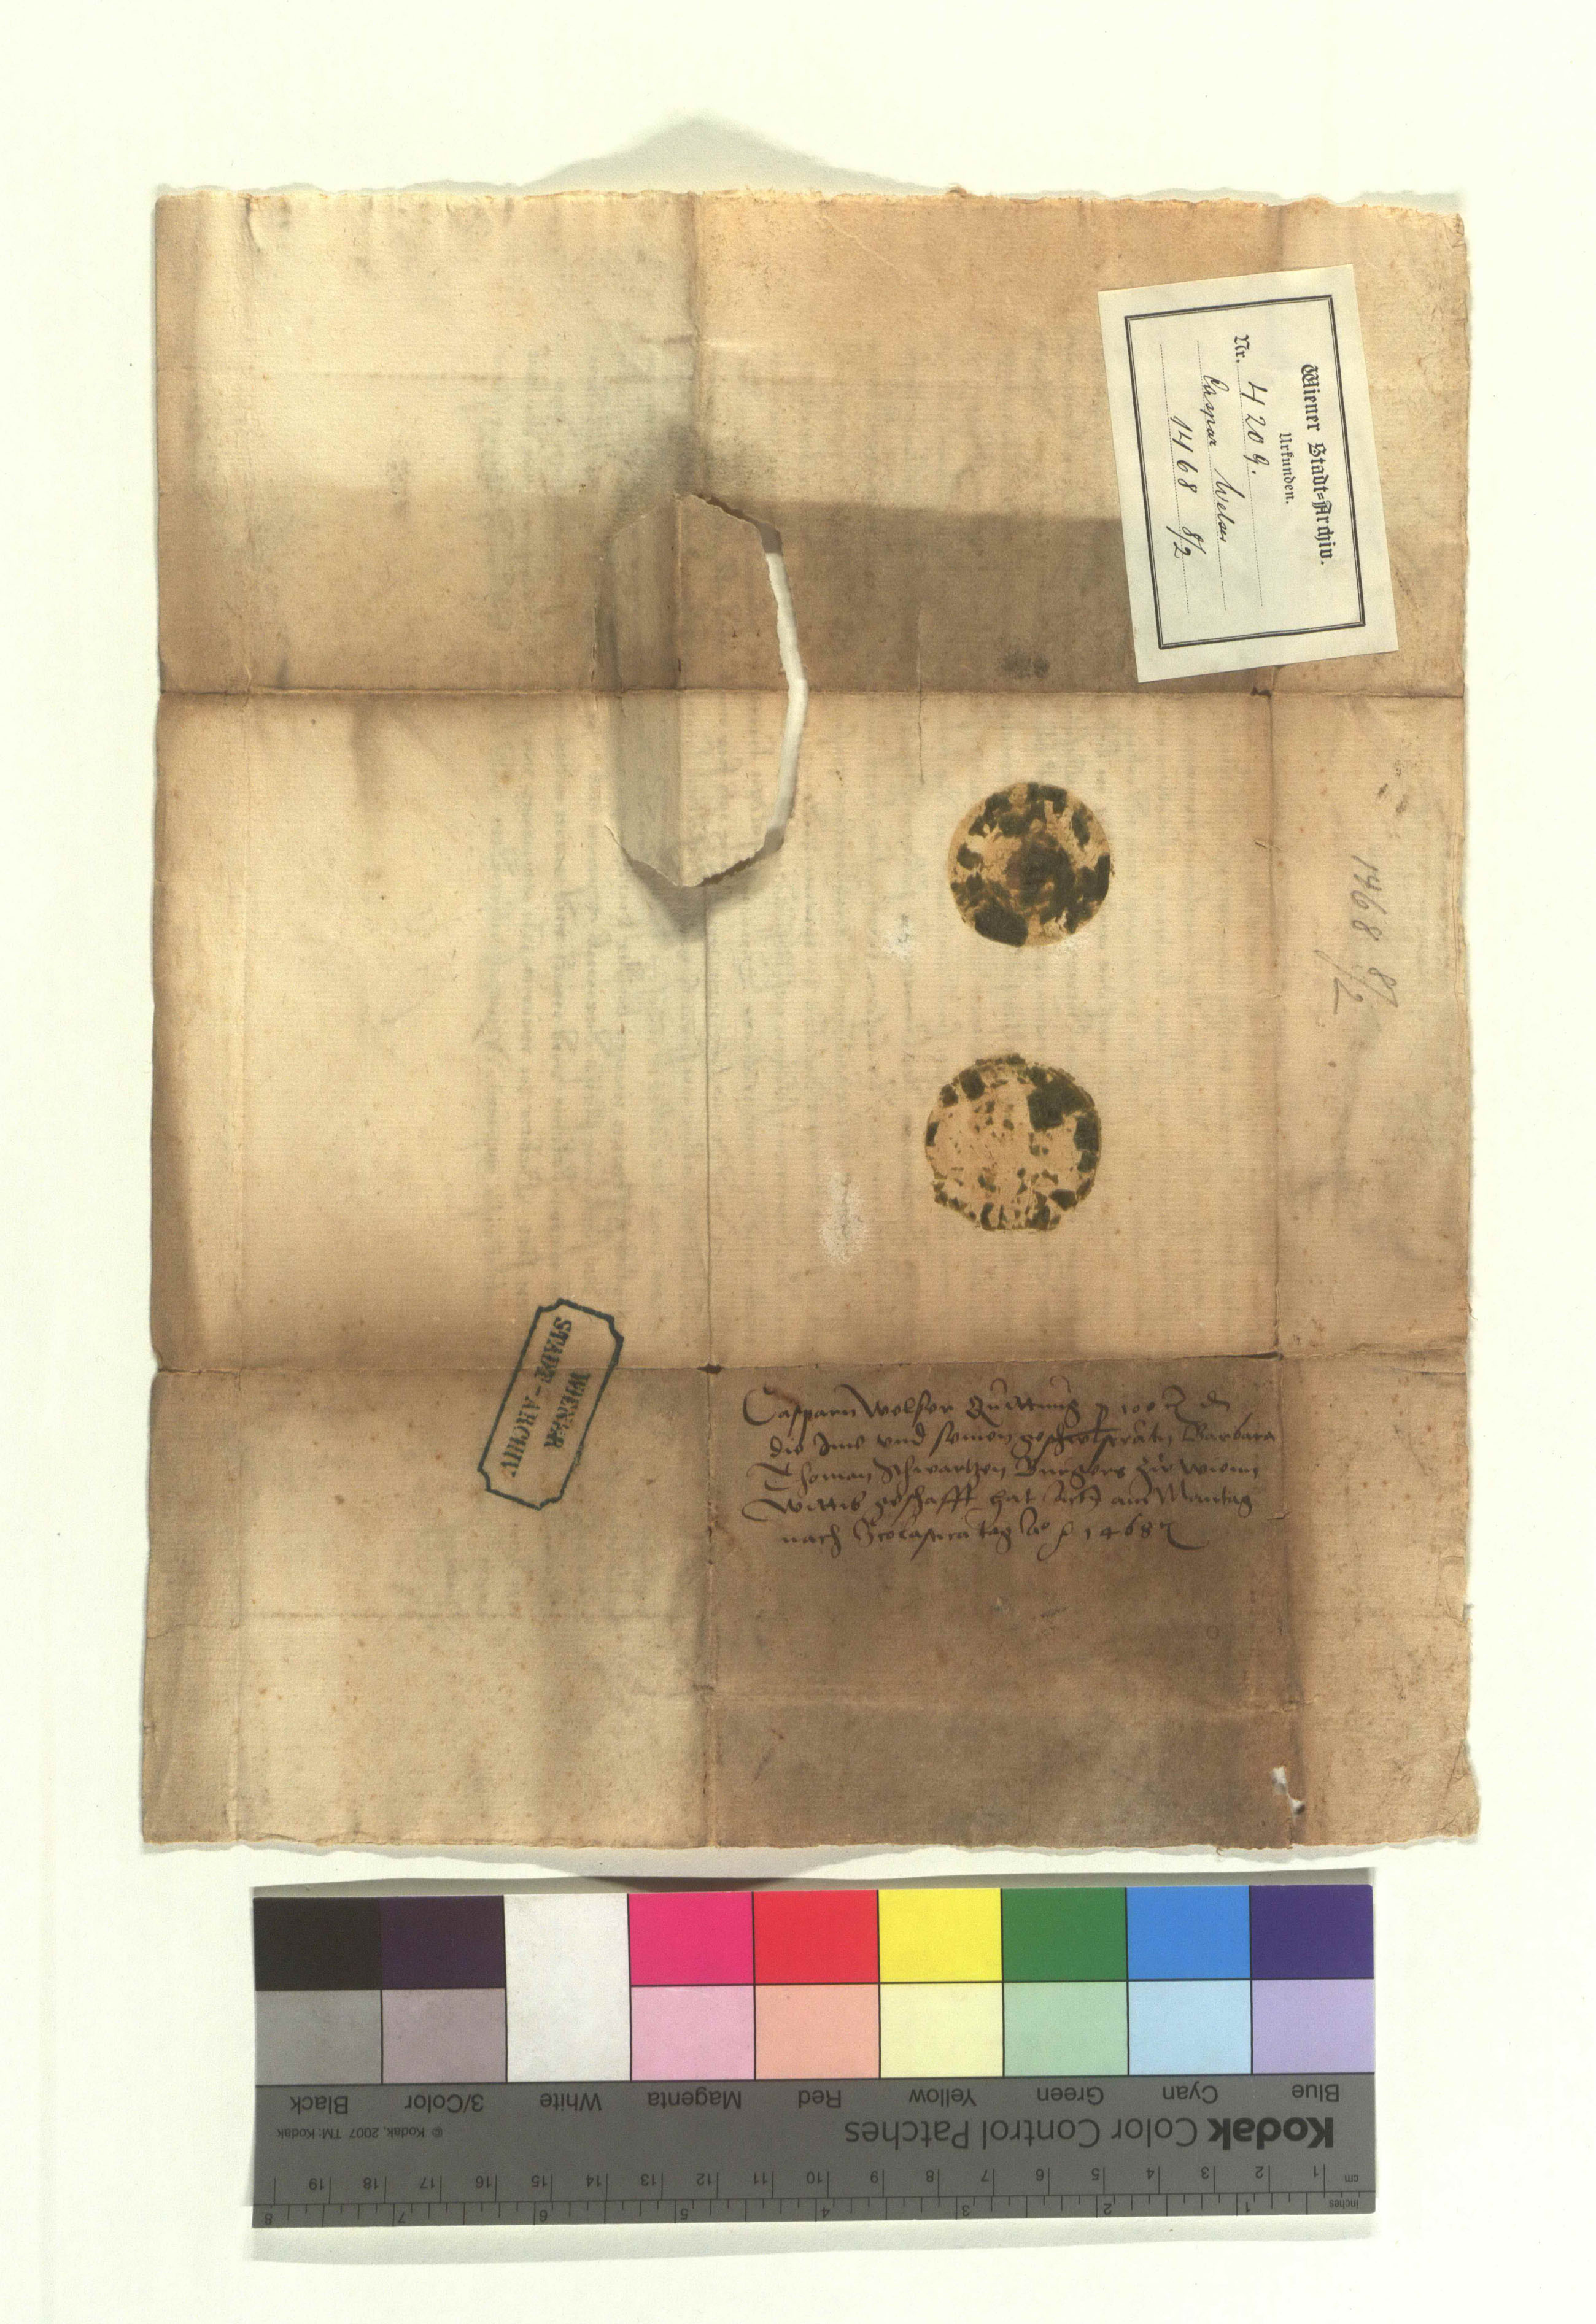 Wiener Stadt-Archiv.
Urkunden.
Nr. 4209.
Caspar Welser
1468 8/2
1468 8/2
WIENER
STADT-ARCHIV
Casparn Welser Quittung p 100 den
die Ime vnd seinen geschwistraten Barbara
Thoman Schwartzen Burgers zu Wienn
Wittib geschafft hat am Montag
nach Scolastica tag Ao 1468
Blue
Cyan
Green
Yellow
Red
Magenta
White
3/Color
Black
Kodak Color Control Patches
© Kodak, 2007 TM: Kodak
cm 1 2 3 4 5 6 7 8 9 10 11 12 13 14 15 16 17 18 19
inches 1 2 3 4 5 6 7 8